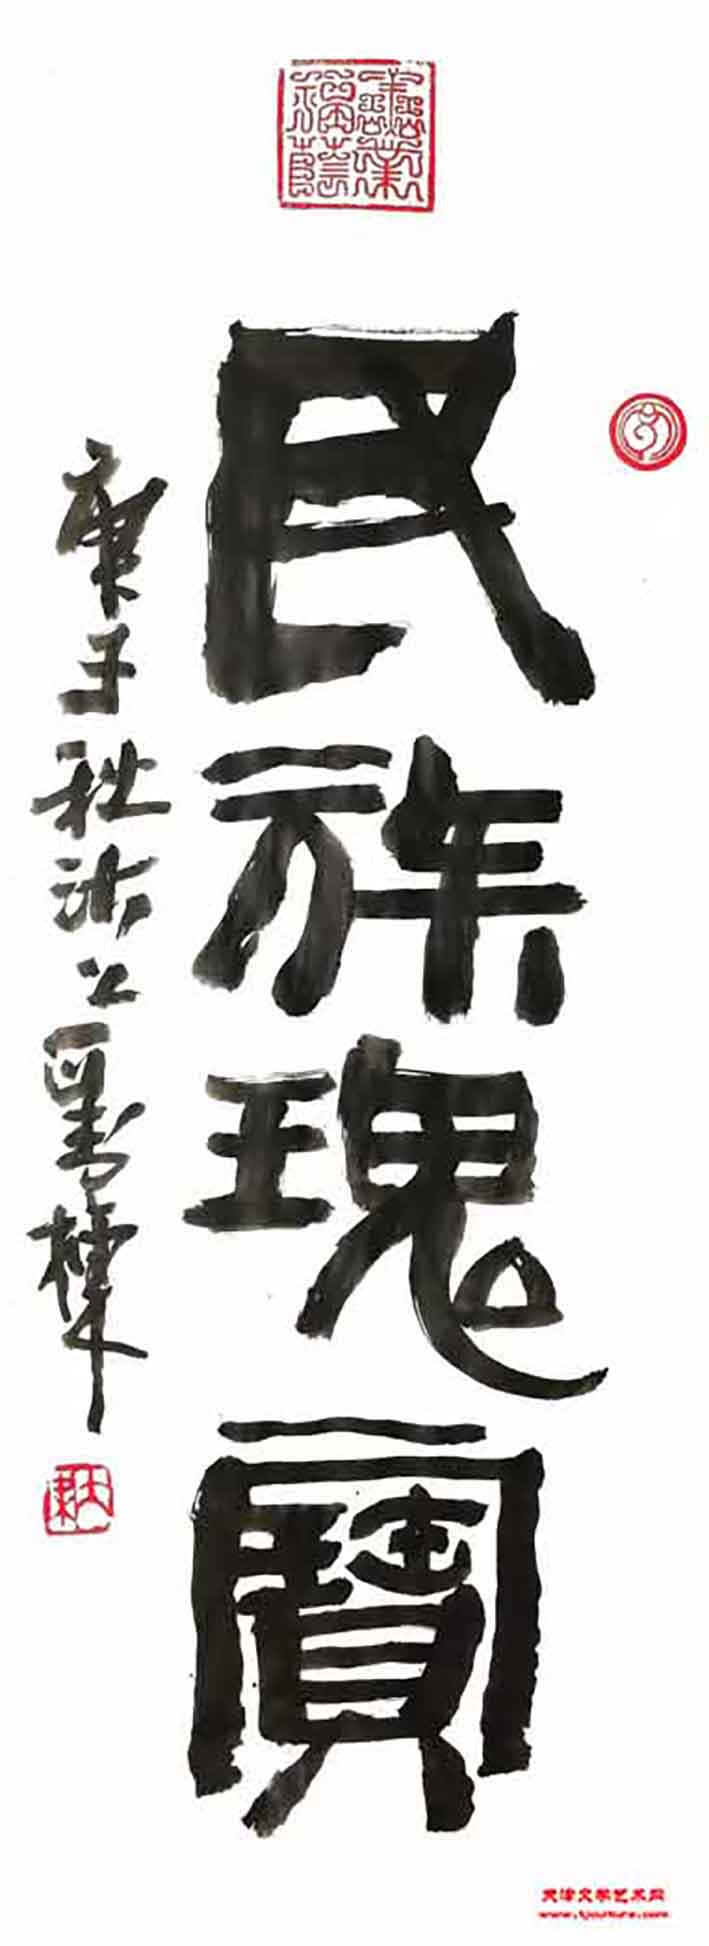 民族瑰寶
庚子秋沽上
天津文学艺术网
www.tjculture.com